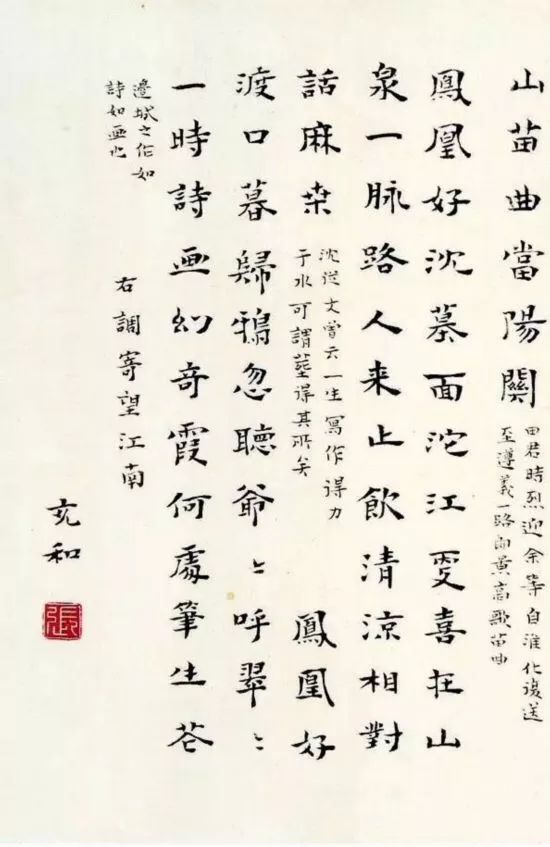 山苗曲當陽關
田君時烈迎余等自淮化復送
至遵義一路高歌苗曲
鳳凰好沈墓面沱江更喜在山
泉一脉路人来止飲清涼相對
話麻桒
沈從文曾云一生寫作得力
于水可謂葬得其所矣
鳳凰好
渡口暮歸鴉忽聽爺〻呼翠〻
一時詩画幻奇霞何處筆生花
邊城之作如
詩如画也
右調寄望江南
充和
張